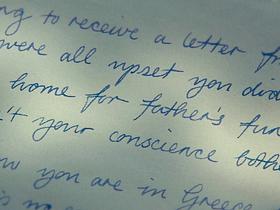 ng to receive a letter fr
were all upset you did
home for father's fun
't your conscience bothe
you are in Greece